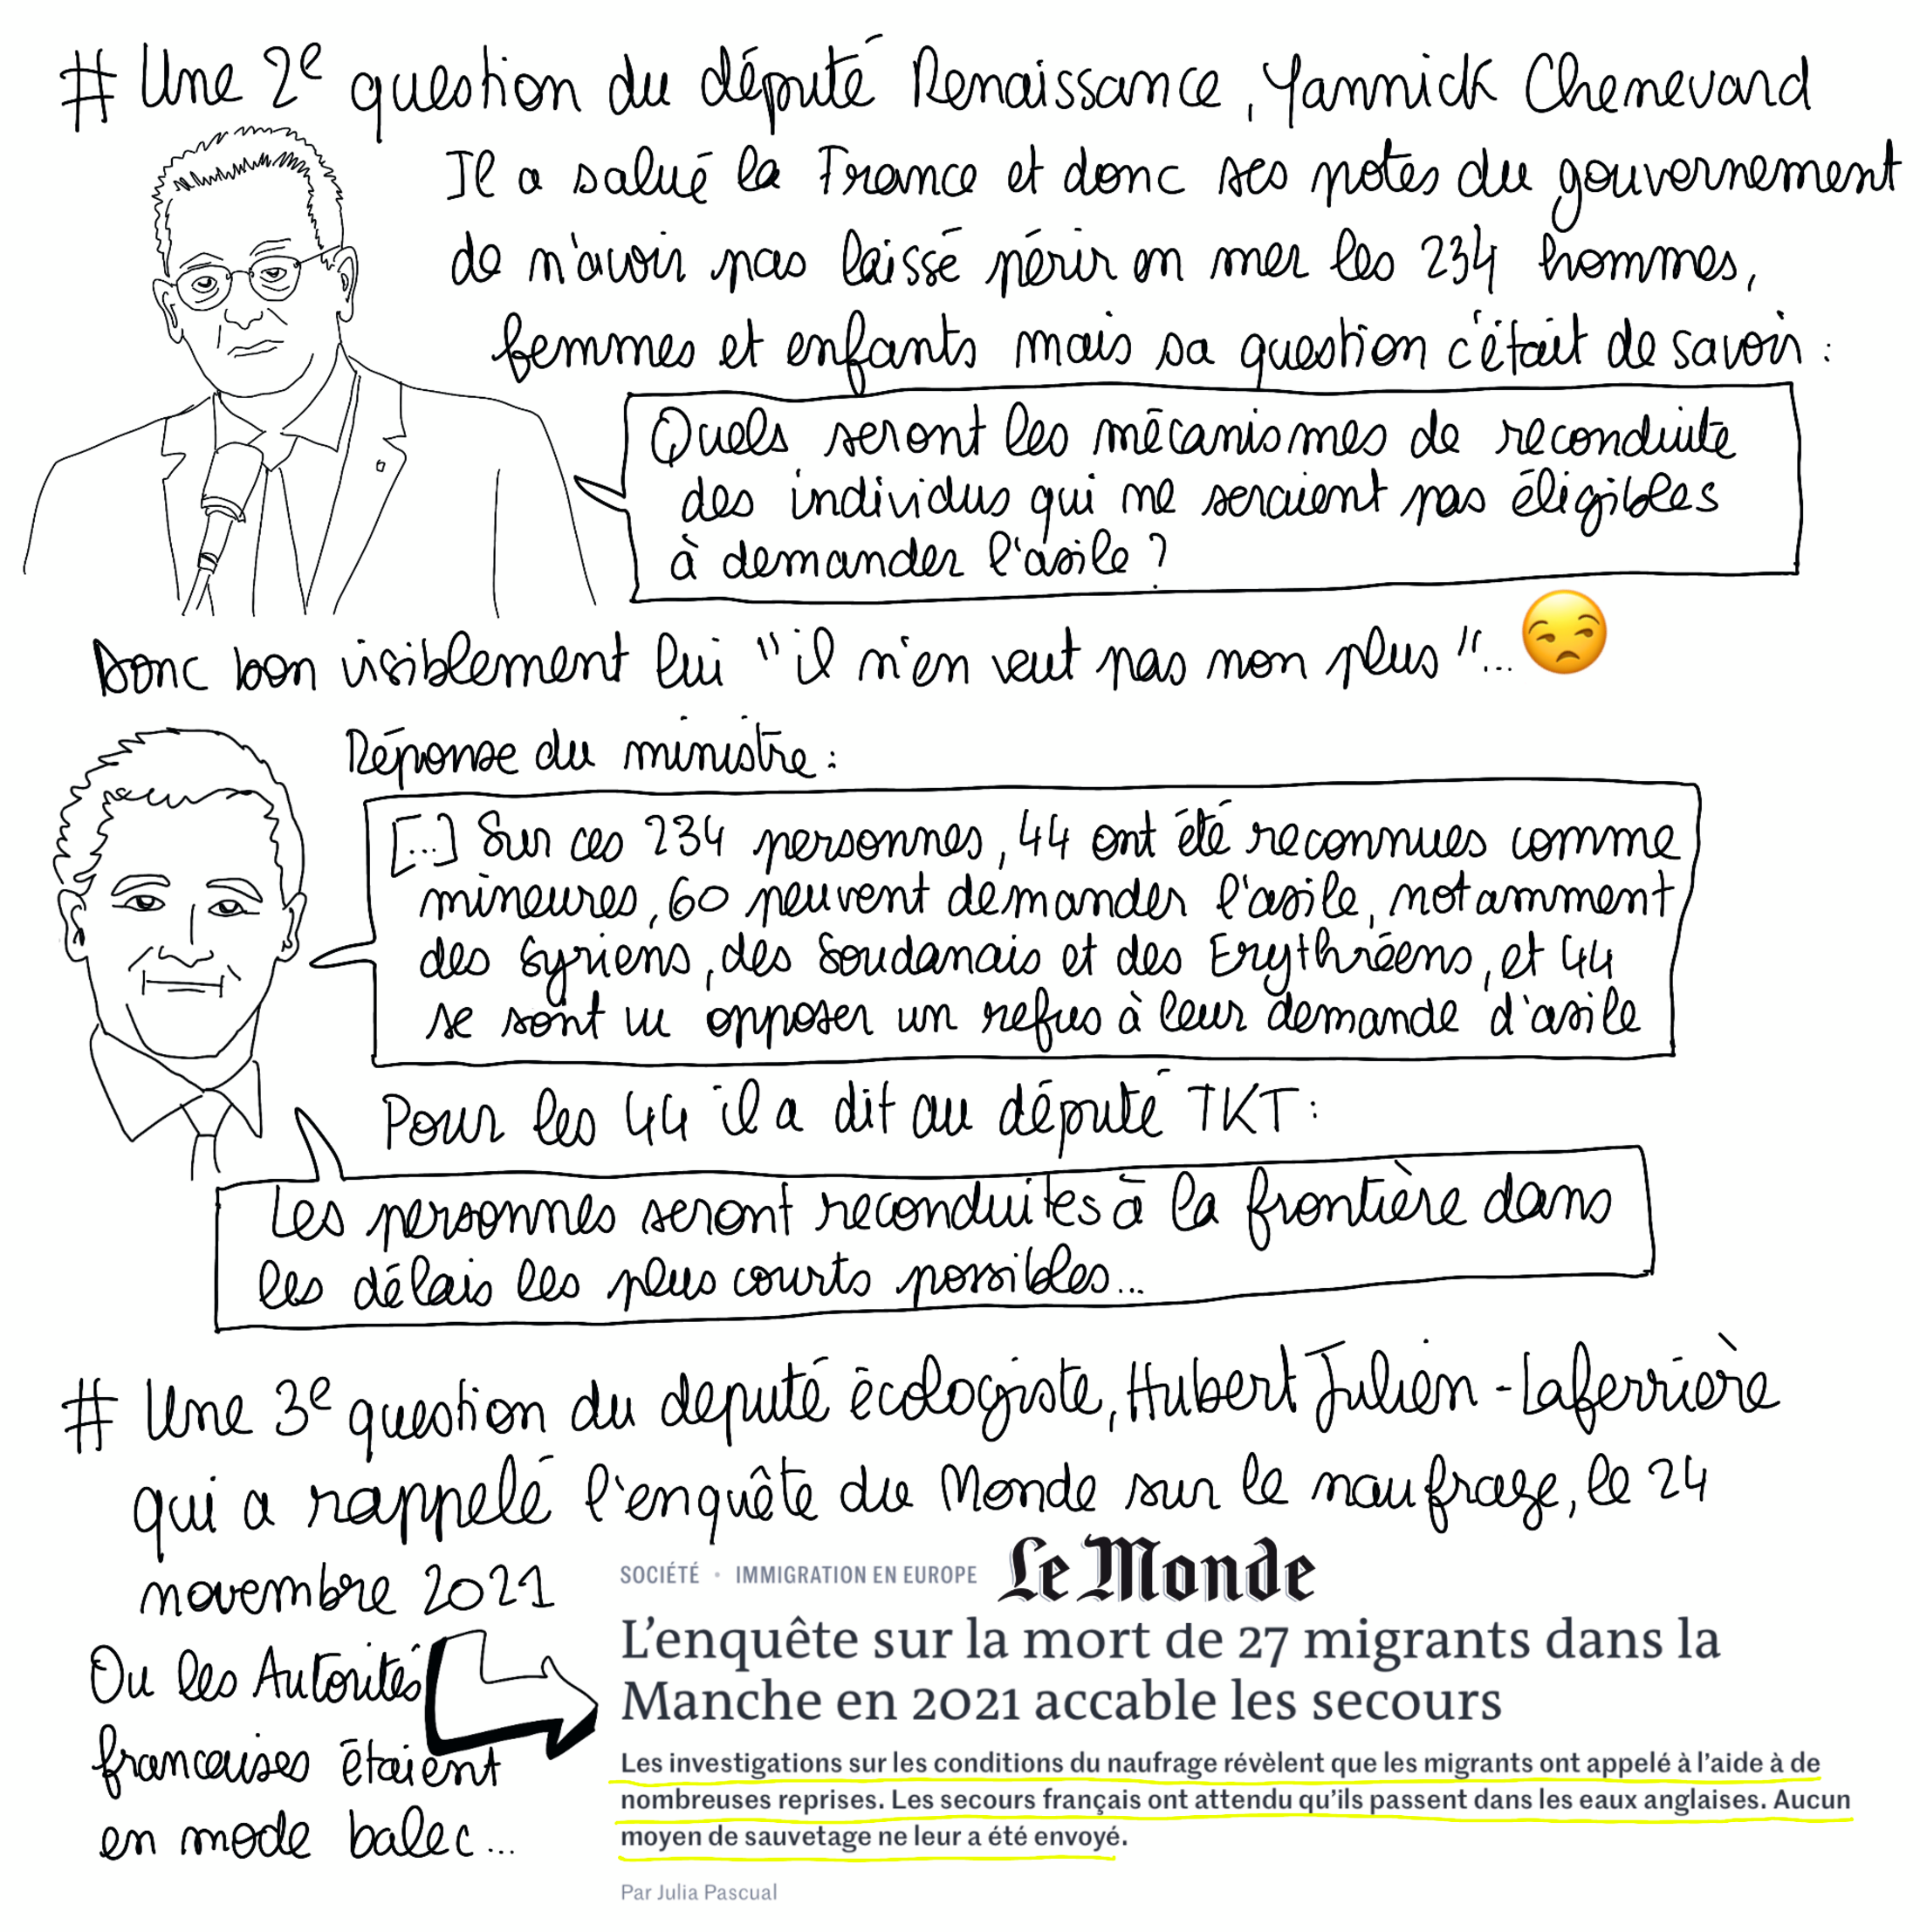 # Une 2e question du député Renaissance, Yannick Chenevard
Il a salué la France et donc ses potes du gouvernement
de n'avoir pas laissé périr en mer les 234 hommes,
femmes et enfants mais sa question c'était de savoir :
Quels seront les mécanismes de reconduite
des individus qui ne seraient pas éligibles
à demander l'asile ?
Donc bon visiblement lui "il n'en veut pas non plus"... 😒
Réponse du ministre :
[...] Sur ces 234 personnes, 44 ont été reconnues comme
mineures, 60 peuvent demander l'asile, notamment
des Syriens, des Soudanais et des Erythréens, et 44
se sont vu opposer un refus à leur demande d'asile
Pour les 44 il a dit au député TKT :
Les personnes seront reconduites à la frontière dans
les délais les plus courts possibles...
# Une 3e question du deputé écologiste, Hubert Julien-Laferrière
qui a rappelé l'enquête du Monde sur le naufrage, le 24
novembre 2021
SOCIÉTÉ • IMMIGRATION EN EUROPE Le Monde
L'enquête sur la mort de 27 migrants dans la
Manche en 2021 accable les secours
Ou les Autorités
francaises étaient
en mode balec...
Les investigations sur les conditions du naufrage révèlent que les migrants ont appelé à l'aide à de
nombreuses reprises. Les secours français ont attendu qu'ils passent dans les eaux anglaises. Aucun
moyen de sauvetage ne leur a été envoyé.
Par Julia Pascual